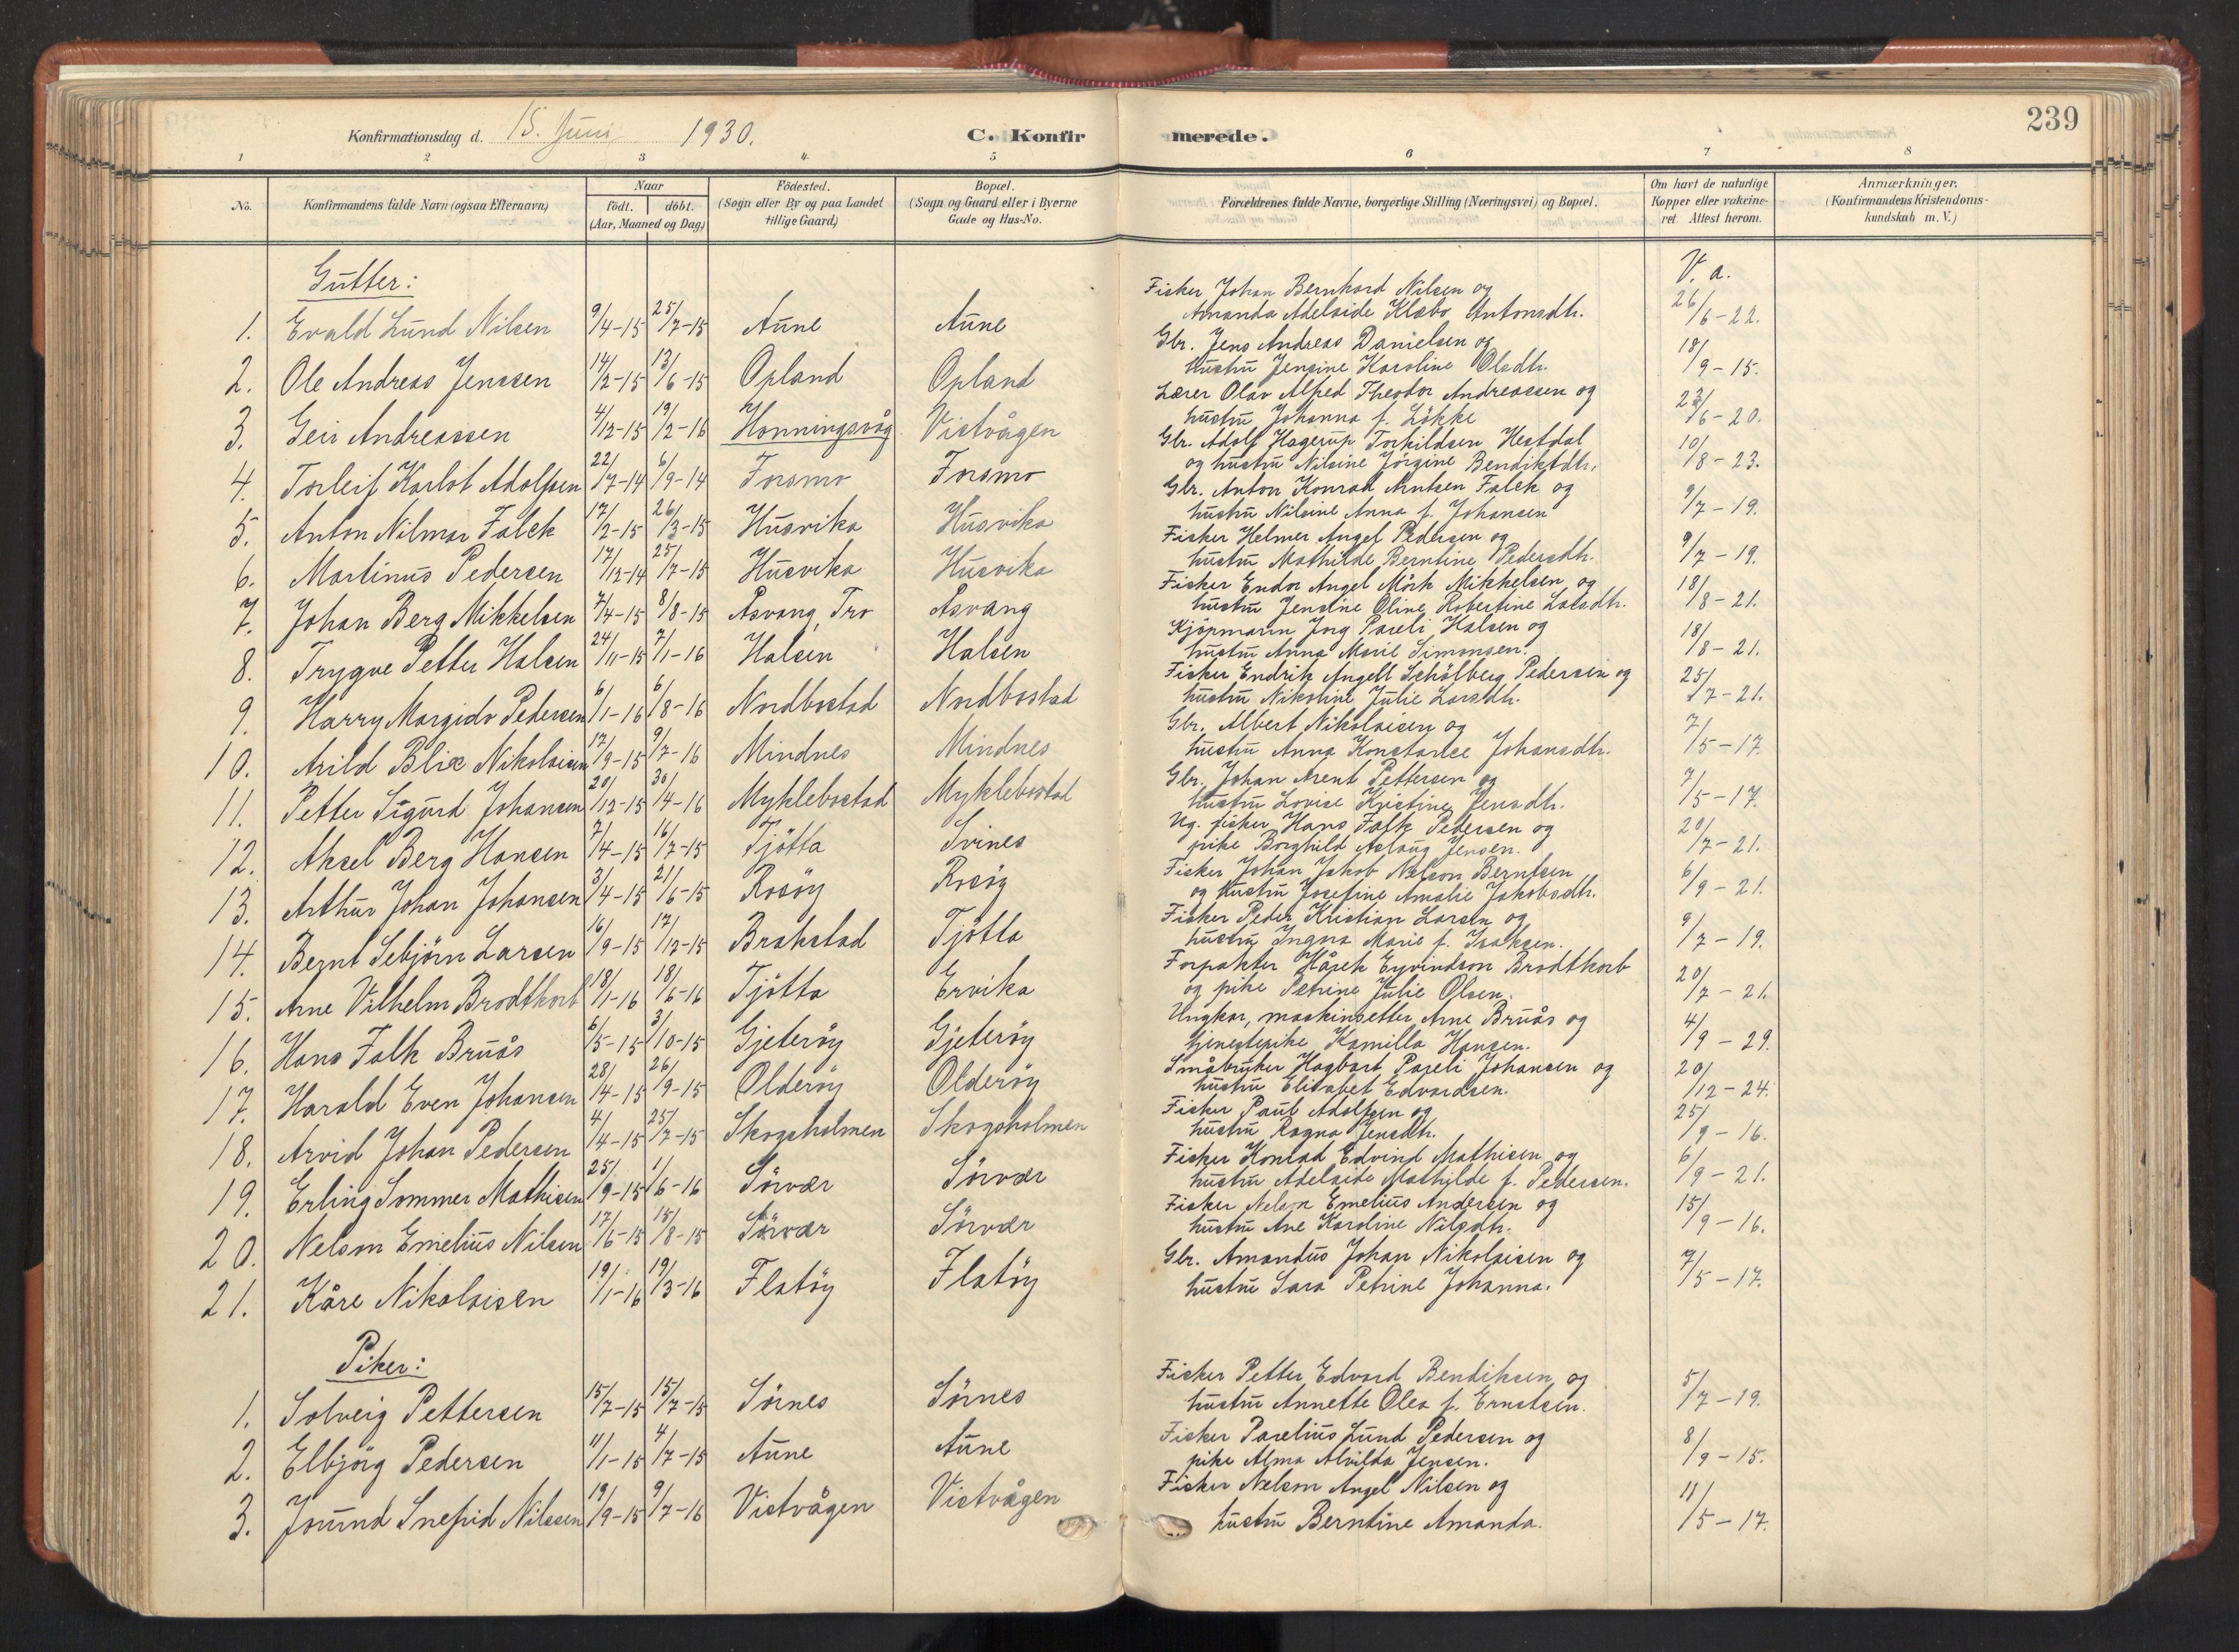 239
Konfirmationsdag d. 15. Juni 1930.
C. Konfirmerede.
1 2 3 4. 5 6 7 8
No.
Konfirmandens fulde Navn (ogsaa Efternavn)
Naar
födt. döbt.
(Aar, Maaned og Dag)
Födested.
(Sogn eller By og paa Landet
tillige Gaard)
Bopæl.
(Sogn og Gaard eller i Byerne
Gade og Hus-No.
Forældrenes fulde Navne, borgerlige Stilling (Næringsvei) og Bopæl.
Om havt de naturlige
Kopper eller vakcine-
ret. Attest herom.
Anmærkninger.
(Konfirmandens Kristendoms-
kundskab m. V.)
Gutter:
V. a.
1. Evald Lund Nilsen 9/4-15 25/7-15 Aune Aune Fisker Johan Bernhard Nilsen og
Amanda Adelaide Klæbo Antonsdtr. 26/6-22.
2. Ole Andreas Jenssen 14/2-15 13/6-15 Opland Opland Gbr. Jens Andreas Danielsen og
hustru Jensine Karoline Olsdtr. 18/9-15.
3. Geir Andreassen 4/12-15 19/2-16 Honningsvåg Vistvågen Lærer Olav Alfred Theodor Andreassen og
hustru Johanna f. Lökke 23/6-20.
4. Torleif Karlot Adolfsen 22/7-14 6/9-14 Forsmo Forsmo Gbr. Adolf Hagerup Torkildsen Hestdal
og hustru Nilsine Jörgine Bendiktdtr. 10/8-23.
5. Anton Nilmar Falck 17/2-15 26/3-15 Husvika Husvika Gbr. Anton Konrad Arntsen Falck og
hustru Nilsine Anna f. Johansen 9/7-19.
6. Martinus Pedersen 17/12-14 25/7-15 Husvika Husvika Fisker Helmer Angel Pedersen og
hustru Mathilde Berntine Pedersdtr. 9/7-19.
7. Johan Berg Mikkelsen 7/4-15 8/8-15 Åsvang, Tro Åsvang Fisker Endor Angel Mörk Mikkelsen og
hustru Jensine Oline Robertine Larsdtr. 18/8-21.
8. Trygve Petter Halsen 24/11-15 7/1-16 Halsen Halsen Kjöpmann Jorg Pareli Halsen og
hustru Anna Marie Simonsen. 18/8-21.
9. Harry Margido Pedersen 6/1-16 6/8-16 Nordbostad Nordbostad Fisker Endrik Angell Schölberg Pedersen og
hustru Nikoline Julie Larsdtr. 25/7-21.
10. Arild Blix Nikolaisen 17/9-15 9/7-16 Mindnes Mindnes Gbr. Albert Nikolaisen og
hustru Anna Konstanse Johansdtr. 7/5-17.
11. Petter Sigurd Johansen 20/12-15 30/4-16 Myklebostad Myklebostad Gbr. Johan Arent Pettersen og
hustru Lovise Kristine Jensdtr. 7/5-17.
12. Aksel Berg Hansen 7/4-15 16/7-15 Tjötta Svines Ug. fisker Hans Falk Pedersen og
pike Borghild Aslaug Jensen. 20/7-21.
13. Arthur Johan Johansen 3/4-15 21/6-15 Rosöy Rosöy Fisker Johan Jakob Nelson Berntsen
og hustru Josefine Amalie Jakobsdtr. 6/9-21.
14. Bernt Sebjörn Larsen 16/9-15 17/12-15 Brakstad Tjötta Fisker Peder Kristian Larsen og
hustru Ingna Marie f. Isaksen. 9/7-19.
15. Arne Vilhelm Brodtkorb 18/1-16 18/6-16 Tjötta Ervika Forpakter Hårek Eyvindson Brodtkorb
og pike Petrine Julie Olsen. 20/7-21.
16. Hans Falk Bruås 6/5-15 3/10-15 Gjeteröy Gjeteröy Ungkar, maskinsetter Arne Bruås og
tjenestepike Kamilla Hansen. 4/9-29.
17. Harald Even Johansen 28/4-15 26/9-15 Olderöy Olderöy Småbruker Hagbart Pareli Johansen og
hustru Elisabet Edvardsen. 20/12-24.
18. Arvid Johan Pedersen 4/4-15 25/7-15 Skogsholmen Skogsholmen Fisker Paul Adolfsen og
hustru Ragna Jensdtr. 25/9-16.
19. Erling Sommer Mathisen 25/9-15 1/6-16 Sörvær Sörvær Fisker Konrad Edvind Mathisen og
hustru Adelaide Mathilde f. Pedersen. 6/9-21.
20. Nelson Emelius Nilsen 17/6-15 15/8-15 Sörvær Sörvær Fisker Nelson Emelius Andersen og
hustru Ane Karoline Nilsdtr. 15/9-16.
21. Kåre Nikolaisen 19/1-16 19/3-16 Flatöy Flatöy Gbr. Amandus Johan Nikolaisen og
hustru Sara Petrine Johanna. 7/5-17.
Piker:
1. Solveig Pettersen 15/7-15 15/7-15 Sörnes Sörnes Fisker Petter Edvard Bendiksen og
hustru Annette Olea f. Ernstsen. 5/7-19.
2. Elbjörg Pedersen 11/1-15 4/7-15 Aune Aune Fisker Parelius Lund Pedersen og
pike Alma Alvilda Jensen. 8/9-15.
3. Jorund Snefrid Nilssen 19/9-15 9/7-16 Vistvågen Vistvågen Fisker Nelson Angel Nilsen og
hustru Berntine Amanda. 11/5-17.